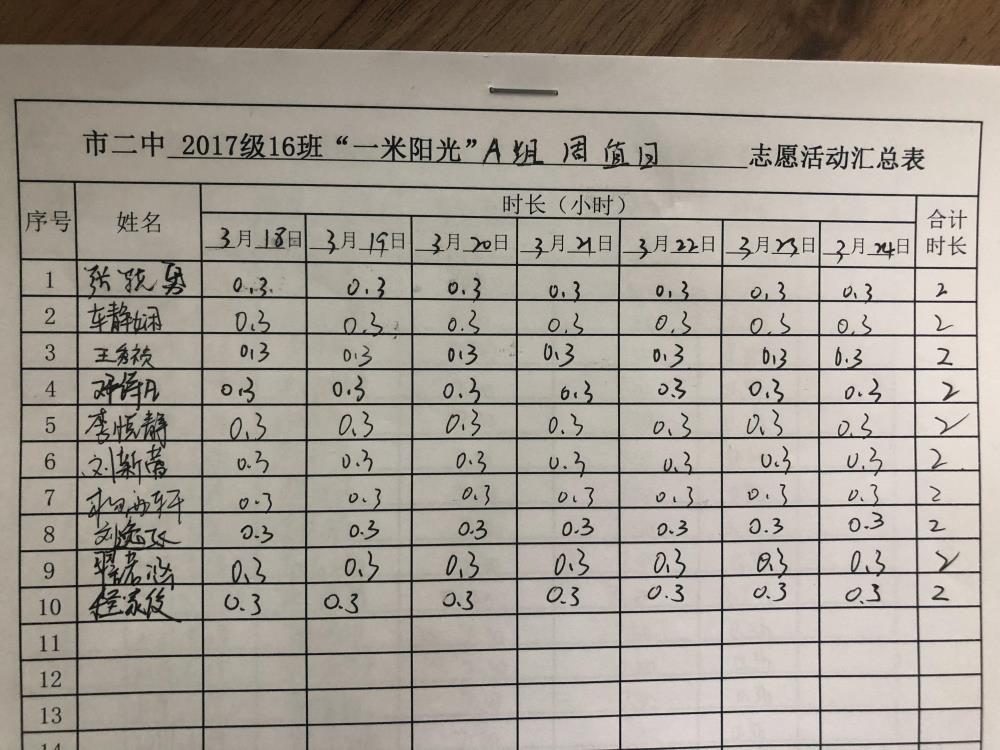 市二中 2017级16班“一米阳光”A组 周值日 志愿活动汇总表
序号 姓名 时长（小时） 合计时长
3月18日 3月19日 3月20日 3月21日 3月22日 3月23日 3月24日
1 张 男 0.3 0.3 0.3 0.3 0.3 0.3 0.3 2
2 车静娴 0.3 0.3 0.3 0.3 0.3 0.3 0.3 2
3 王 祯 0.3 0.3 0.3 0.3 0.3 0.3 0.3 2
4 0.3 0.3 0.3 0.3 0.3 0.3 0.3 2
5 李悦静 0.3 0.3 0.3 0.3 0.3 0.3 0.3 2
6 刘新蕾 0.3 0.3 0.3 0.3 0.3 0.3 0.3 2
7 轩 0.3 0.3 0.3 0.3 0.3 0.3 0.3 2
8 刘逸 0.3 0.3 0.3 0.3 0.3 0.3 0.3 2
9 0.3 0.3 0.3 0.3 0.3 0.3 0.3 2
10 程家俊 0.3 0.3 0.3 0.3 0.3 0.3 0.3 2
11
12
13
14